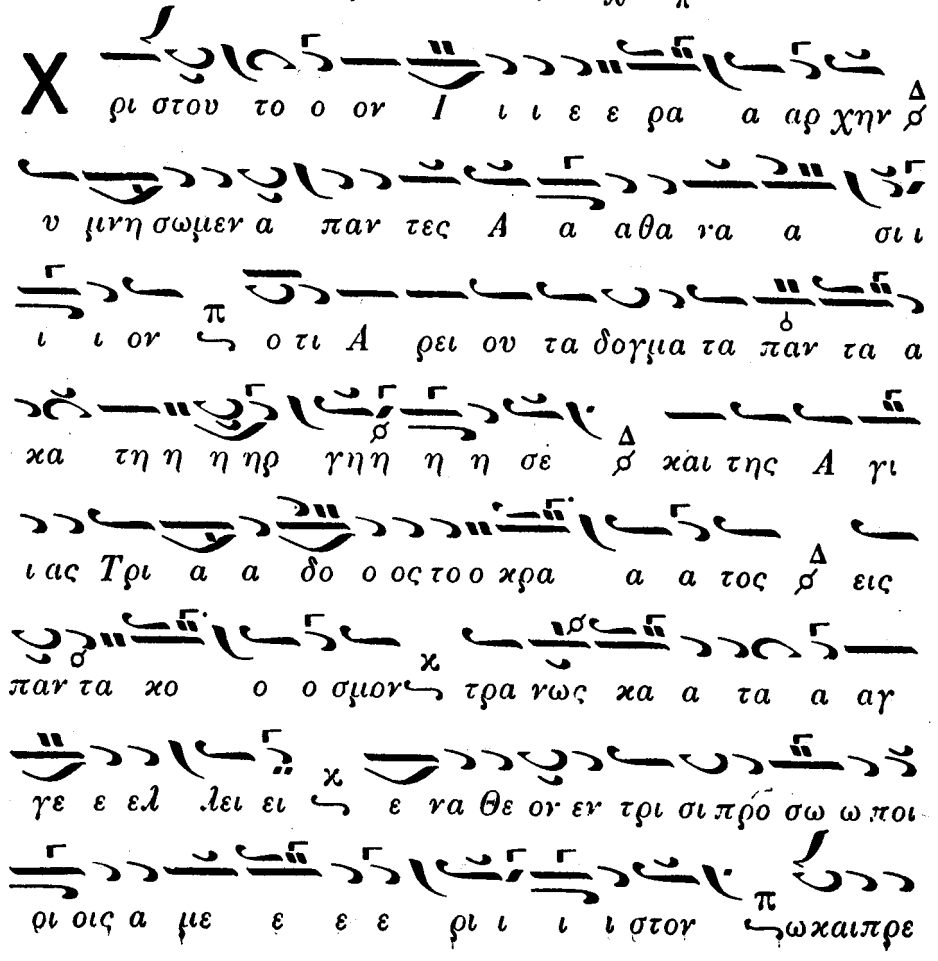 Χ ρι στου το ο ον Ι ι ι ε ε ρα α αρ χην Δ
υ μνη σωμεν α παν τες Α α αθα να α σι ι
ι ι ον π ο τι Α ρει ου τα δογμα τα παν τα α
κα τη η η ηρ γη η η η σε Δ και της Α γι
ι ας Τρι α α δο ο ος το ο κρα α α τος Δ εις
παν τα κο ο ο σμον κ τρα νως κα α τα α αγ
γε ε ελ λει ει κ ε να Θε ον εν τρι σι προ σω ω ποι
ρι οις α με ε ε ε ρι ι ι ι στον π ω και πρε